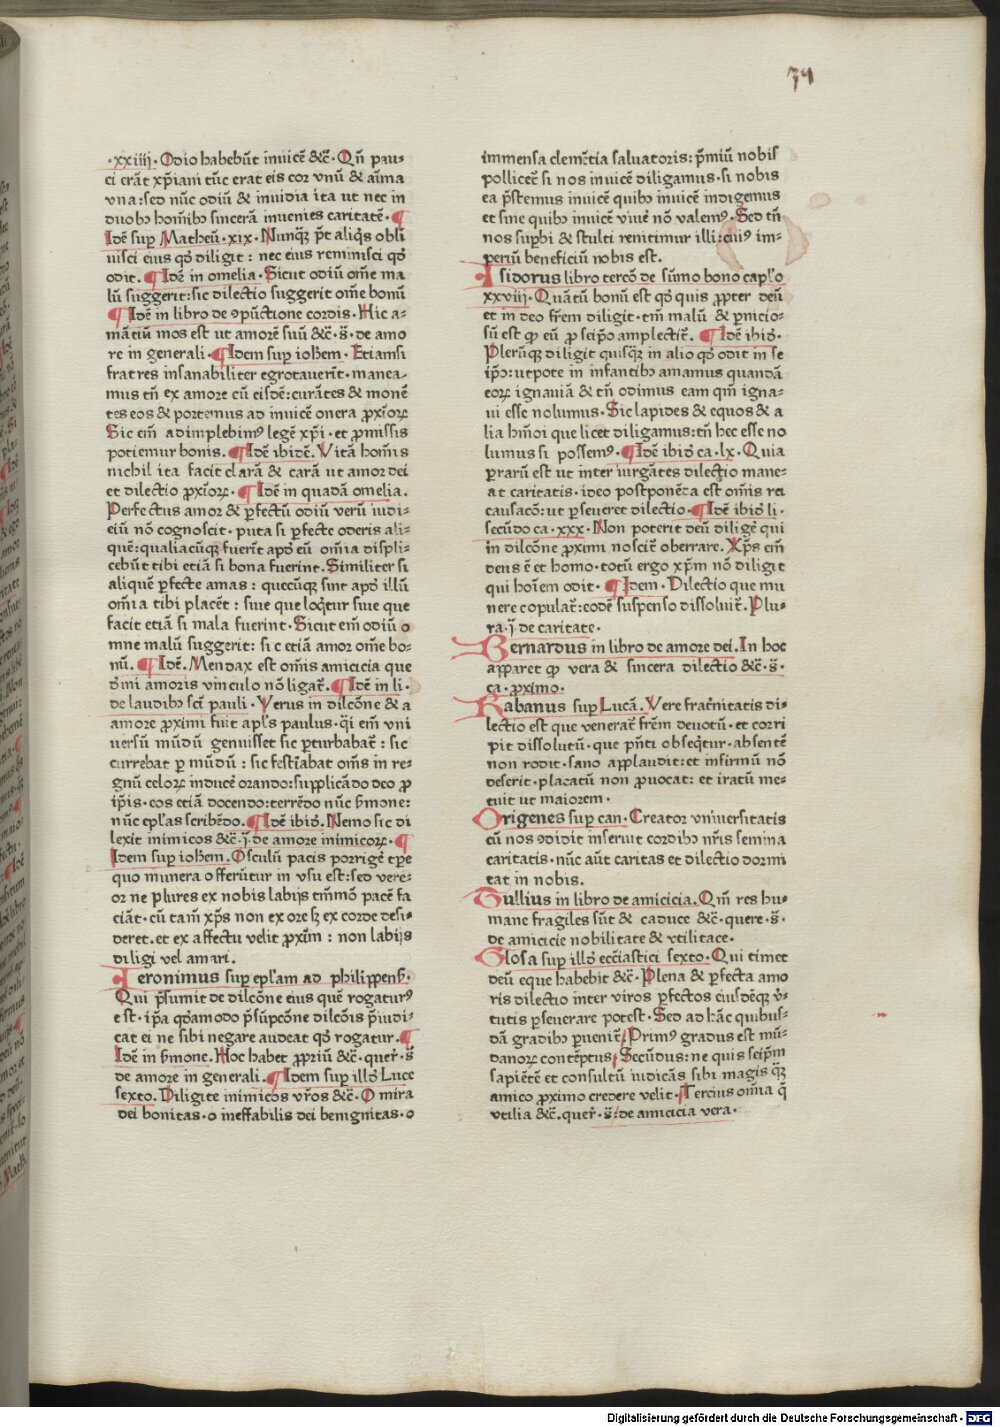 74
·xxiiij· Odio habebūt inuicē &c̄· Qn̄ pau-
ci erāt xp̄iani tūc erat eis cor vnū & aīma
vna: sed nūc odiū & inuidia ita ut nec in
duobꝫ homībꝫ sincerā inuenies caritatē· ¶
Idē suꝑ Matheū·xix· Nunqꝫ pōt aliqͥs obli
uisci eius qd̓ diligit : nec eius reminisci qd̓
odit· ¶ Idē in omelia· Sicut odiū om̄e ma
lū suggerit: sic dilectio suggerit om̄e bonū
¶ Idē in libro de ꝯpūctione cordis· Hic a-
mātiū mos est ut amorē suū &c̄· s̄· de amo
re in generali· ¶ Idem suꝑ ioħem· Etiamsi
fratres insanabiliter egrotauerīt· manea-
mus tn̄ ex amore cū eisdē: curātes & monē
tes eos & portemus ad inuicē onera ꝓxīoꝝ
Sic em̄ adimplebimꝰ legē xp̄i· et ꝓmissis
potiemur bonis. ¶ Idē ibidē. Vitā homīs
nichil ita facit clarā & carā ut amor dei
et dilectio ꝓxīoꝝ· ¶ Idē in quadā omelia.
Perfectus amor & ꝑfectū odiū verū iudi-
ciū nō cognoscit· puta si ꝑfecte oderis ali-
quē: qualiacūqꝫ fuerīt apd̓ eū om̄ia displi-
cebūt tibi etiā si bona fuerint. Similiter si
aliquē ꝑfecte amas : quecūqꝫ sint apd̓ illū
om̄ia tibi placēt : siue que loqͣtur siue que
facit etiā si mala fuerint· Sicut em̄ odiū o
mne malū suggerit: sic etiā amor om̄e bo-
nū. ¶ Idē. Mendax est om̄is amicicia que
dīni amoris vinculo nō ligat̄. ¶ Idē in li·
de laudibꝫ scī pauli· Verus in dilcōne & a
amore ꝓximi fuit apl̄s paulus· qͥ em̄ vni
uersū mūdū genuisset sic ꝑturbabat̄ : sic
currebat ꝑ mūdū : sic festīabat om̄s in re-
gnū celoꝝ inducē orando: supplicādo deo ꝓ
ip̄is· eos etiā docendo: terrēdo nūc ẜmone:
nūc ep̄las scribēdo. ¶ Idē ibid̓. Nemo sic di
lexit inimicos &c̄· j̄· de amore inimicoꝝ· ¶
Idem suꝑ ioħem. Osculū pacis porrigēt tp̄e
quo munera offerūtur in vsu est: sed vere-
or ne plures ex nobis labijs tm̄mō pacē fa
ciāt· cū tam̄ xp̄s non ex ore sꝫ ex corde desi-
deret· et ex affectu velit ꝓxīm : non labijs
diligi vel amari.
Ieronimus suꝑ ep̄lam ad philippenẜ·
Qui p̄sumit de dilcōne eius quē rogaturꝰ
est· ip̄a qd̓amodo p̄sūpcōne dilcōis p̄iudi-
cat ei ne sibi negare audeat qd̓ rogatur. ¶
Idē in ẜmone. Hoc habet ꝓpriū &c̄· quer̄· s̄
de amore in generali. ¶ Idem suꝑ illd̓ Luce
sexto. Diligite inimicos vr̄os &c̄· O mira
dei bonitas· o ineffabilis dei benignitas· o
immensa clemētia saluatoris: p̄miū nobis
pollicet̄ si nos inuicē diligamus· si nobis
ea p̄stemus inuicē quibꝫ inuicē indigemus
et sine quibꝫ inuicē viuē nō valemꝰ· Sed tn̄
nos suꝑbi & stulti renitimur illi: cuiꝰ im-
periū beneficiū nobis est.
Isidorus libro tercō de sūmo bono caplo̓
xxviij· Quātū bonū est qd̓ quis ꝓpter deū
et in deo fr̄em diligit· tm̄ malū & ꝑnicio-
sū est qꝫ eū ꝓ seip̄o amplectit̄. ¶ Idē ibid̓·
Plerūqꝫ diligit quisqꝫ in alio qd̓ odit in se
ip̄o: utpote in infantibꝫ amamus quandā
eoꝝ ignauiā & tn̄ odimus eam qm̄ igna-
ui esse nolumus· Sic lapides & equos & a
lia hm̄oi que licet diligamus: tn̄ hec esse no
lumus si possemꝰ· ¶ Idē ibid̓ ca· lx· Quia
ꝑrarū est ut inter iurgātes dilectio mane-
at caritatis· ideo postponēda est om̄is rei
causacō: ut ꝑseueret dilectio· ¶ Idē ibid̓ li·
secūdo ca·xxx· Non poterit deū diligē qui
in dilcōne ꝓximi noscit̄ oberrare. Xp̄s em̄
deus ē et homo· totū ergo xp̄m nō diligit
qui hoīem odit· ¶ Idem· Dilectio que mu
nere copulat̄: eodē suspenso dissoluit̄. Plu-
ra·j̄· de caritate·
Bernardus in libro de amore dei. In hoc
apparet qꝫ vera & sincera dilectio &c̄· s̄·
ca· ꝓximo·
Rabanus suꝑ Lucā. Vere frat̄nitatis di-
lectio est que venerat̄ fr̄em deuotū· et corri
pit dissolutū· que p̄nti obseqͥtur· absentē
non rodit· sano applaudit: et infirmū nō
deserit· placatū non ꝓuocat: et iratū me-
tuit ut maiorem·
Origenes suꝑ can· Creator vniuersitatis
cū nos ꝯdidit inseruit cordibꝫ nr̄is semina
caritatis· nūc aūt caritas et dilectio dormi
tat in nobis.
Tullius in libro de amicicia. Qm̄ res hu-
mane fragiles sūt & caduce &c̄· quere· s̄·
de amicicie nobilitate & vtilitate.
Glosa suꝑ illd̓ eccīastici sexto. Qui timet
deū eque habebit &c̄· Plena & ꝑfecta amo
ris dilectio inter viros ꝑfectos eiusdēqꝫ v̓-
tutis ꝑseuerare potest· Sed ad hāc quibus-
dā gradibꝫ ꝑuenit̄ Primꝰ gradus est mū-
danoꝝ contēptus Secūdus: ne quis seip̄m
sapiētē et consultū iudicās sibi magis qꝫ
amico ꝓximo credere velit· Tercius om̄ia q̄
vtilia &c̄· quer̄· s̄· de amicicia vera·
Digitalisierung gefördert durch die Deutsche Forschungsgemeinschaft - DFG